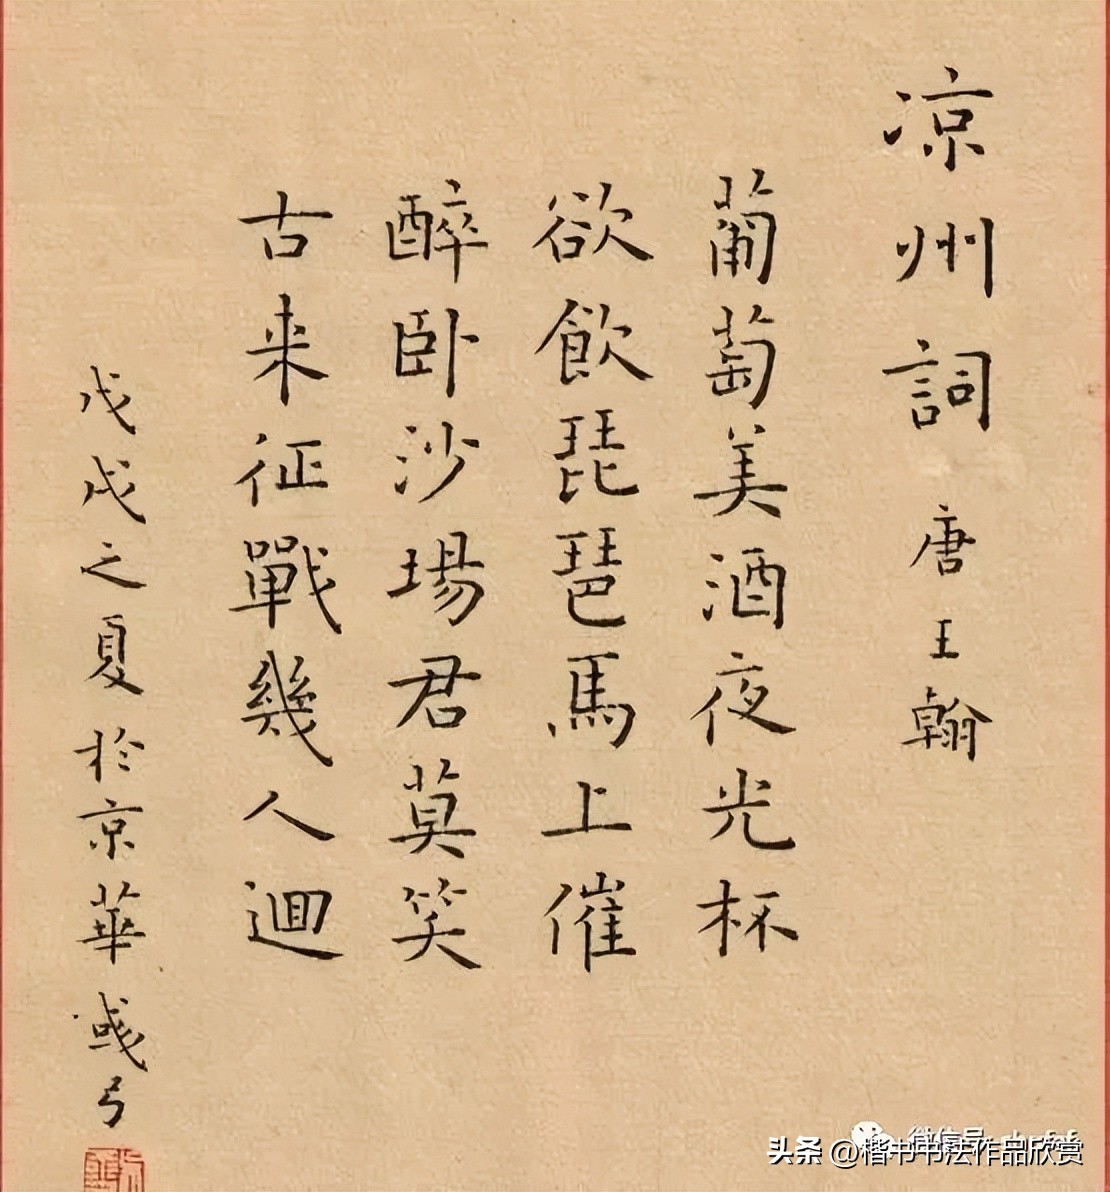 凉州詞 唐 王翰
葡萄美酒夜光杯
欲飲琵琶馬上催
醉卧沙場君莫笑
古来征戰幾人迴
戊戌之夏於京華彧弓
头条 @楷书书法作品欣赏